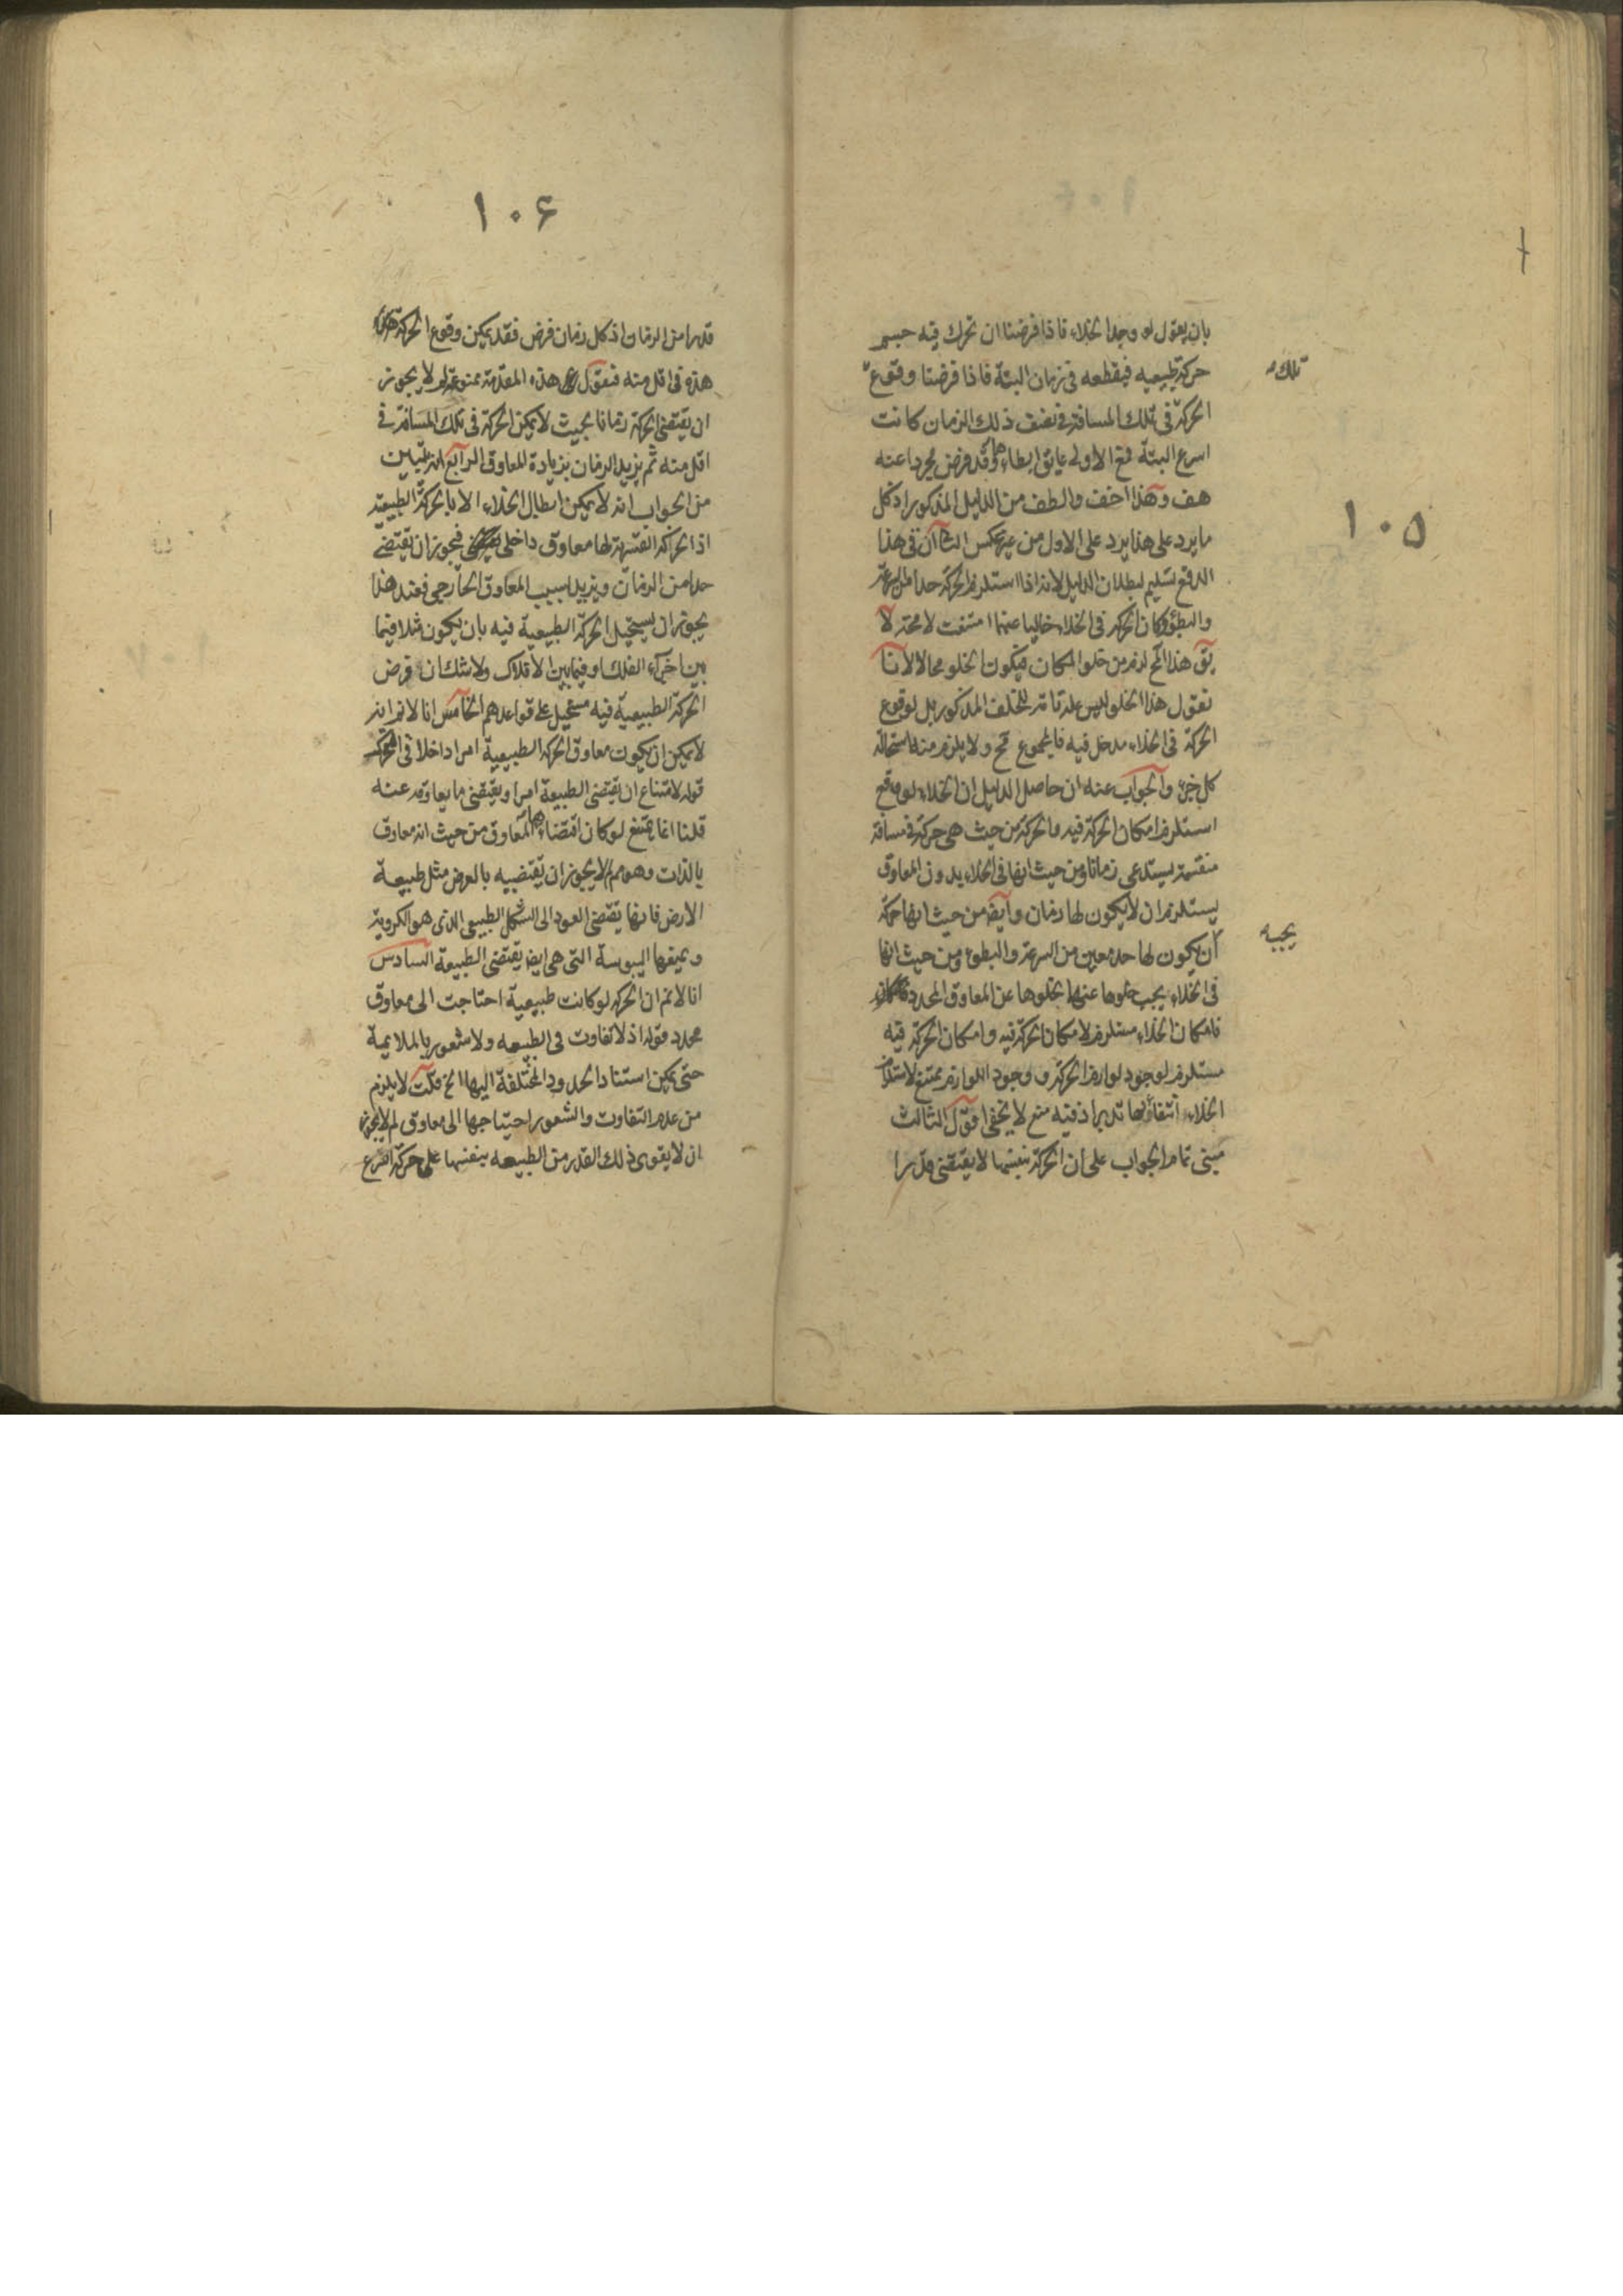 ١٠٥
بان يقول لو وجد الخلاء فاذا فرضنا ان تحرك فيه جسم
حركة طبيعيه فيقطعه فى زمان البتة فاذا فرضنا وقوع
تلك
الحركة فى تلك المسافة فى نصف ذلك الزمان كانت
اسرع البتة فمع الاولى عايق ابطاءها وقد فرض مجردا عنه
هف وهذا اخف والطف من الدليل المذكور اذ كل
ما يرد على هذا يرد على الاول من غير عكس الثانى ان فى هذا
الدفع تسليم لبطلان الدليل لانه اذا استلزم الحركة حدا من السرعة
والبطؤ وكان الحركة فى الخلاء خاليا عنهما امتنعت لا محة لا
يق هذا المح لزم من خلو المكان فيكون الخلو محالا لانا
نقول هذا الخلو ليس علة تامة للخلف المذكور بل لوقوع
الحركة فى الخلاء مدخل فيه فالمجموع مح ولا يلزم منه استحالة
كل جزء والجواب عنه ان حاصل الدليل ان الخلاء لو وقع
استلزم امكان الحركة فيه والحركة من حيث هى حركة فى مسافة
منقسمة يستدعى زمانا ومن حيث انها فى الخلاء بدون المعاوق
يستلزم ان لا يكون لها زمان وايض من حيث انها حركة
يجب
ان يكون لها حد معين من السرعة والبطوء ومن حيث انها
فى الخلاء يجب خلوها عنهما لخلوها عن المعاوق المحدد
فامكان الخلاء مستلزم لامكان الحركة فيه وامكان الحركة فيه
مستلزم لوجود لوازم الحركة ووجود اللوازم ممتنع لاستلزام
الخلاء انتفاؤها تدبر اذ فيه منع لا يخفى اقول الثالث
مبنى تمام الجواب على ان الحركة بنفسها لا يقتضى قدرا
١٠۶
قدرا من الزمان اذ كل زمان فرض فقد يمكن وقوع الحركة
هذه فى اقل منه فنقول هذه المقدمة ممنوعة لم لا يجوز
ان يقتضى الحركة زمانا بحيث لا يمكن الحركة فى تلك المسافة فى
اقل منه ثم يزيد الزمان بزيادة المعاوق الرابع انه تبين
من الجواب انه لا يمكن ابطال الخلاء الا بالحركة الطبيعية
اذ الحركة القسرية لها معاوق داخلى فيجوز ان يقتضى
حدا من الزمان ويزيد بسبب المعاوق الخارجى فعند هذا
يجوز ان يستحيل الحركة الطبيعية فيه بان يكون مثلا فيما
بين اجزاء الفلك او فيما بين الافلاك ولا شك ان فرض
الحركة الطبيعية فيه مستحيل على قواعدهم الخامس انا لا نم انه
لا يمكن ان يكون معاوق الحركة الطبيعية امرا داخلا فى المتحرك
قوله لامتناع ان يقتضى الطبيعة امرا ويقتضى ما يعاوقه عنه
قلنا انما يمتنع لو كان اقتضاءها المعاوق من حيث انه معاوق
بالذات وهو مم لم لا يجوز ان يقتضيه بالعرض مثل طبيعة
الارض فانها يقتضى العود الى الشكل الطبيعى الذى هو الكروية
ويعيقها اليبوسة التى هى ايض يقتضى الطبيعة السادس
انا لا نم ان الحركة لو كانت طبيعية احتاجت الى معاوق
محدد قوله اذ لا تفاوت فى الطبيعه ولا شعور بالملايمة
حتى يمكن استناد الحدود المختلفة اليها الخ قلت لا يلزم
من عدم التفاوت والشعور احتياجها الى معاوق لم لا يجوز
ان لا يقوى ذلك القدر من الطبيعه بنفسها على حركة اسرع